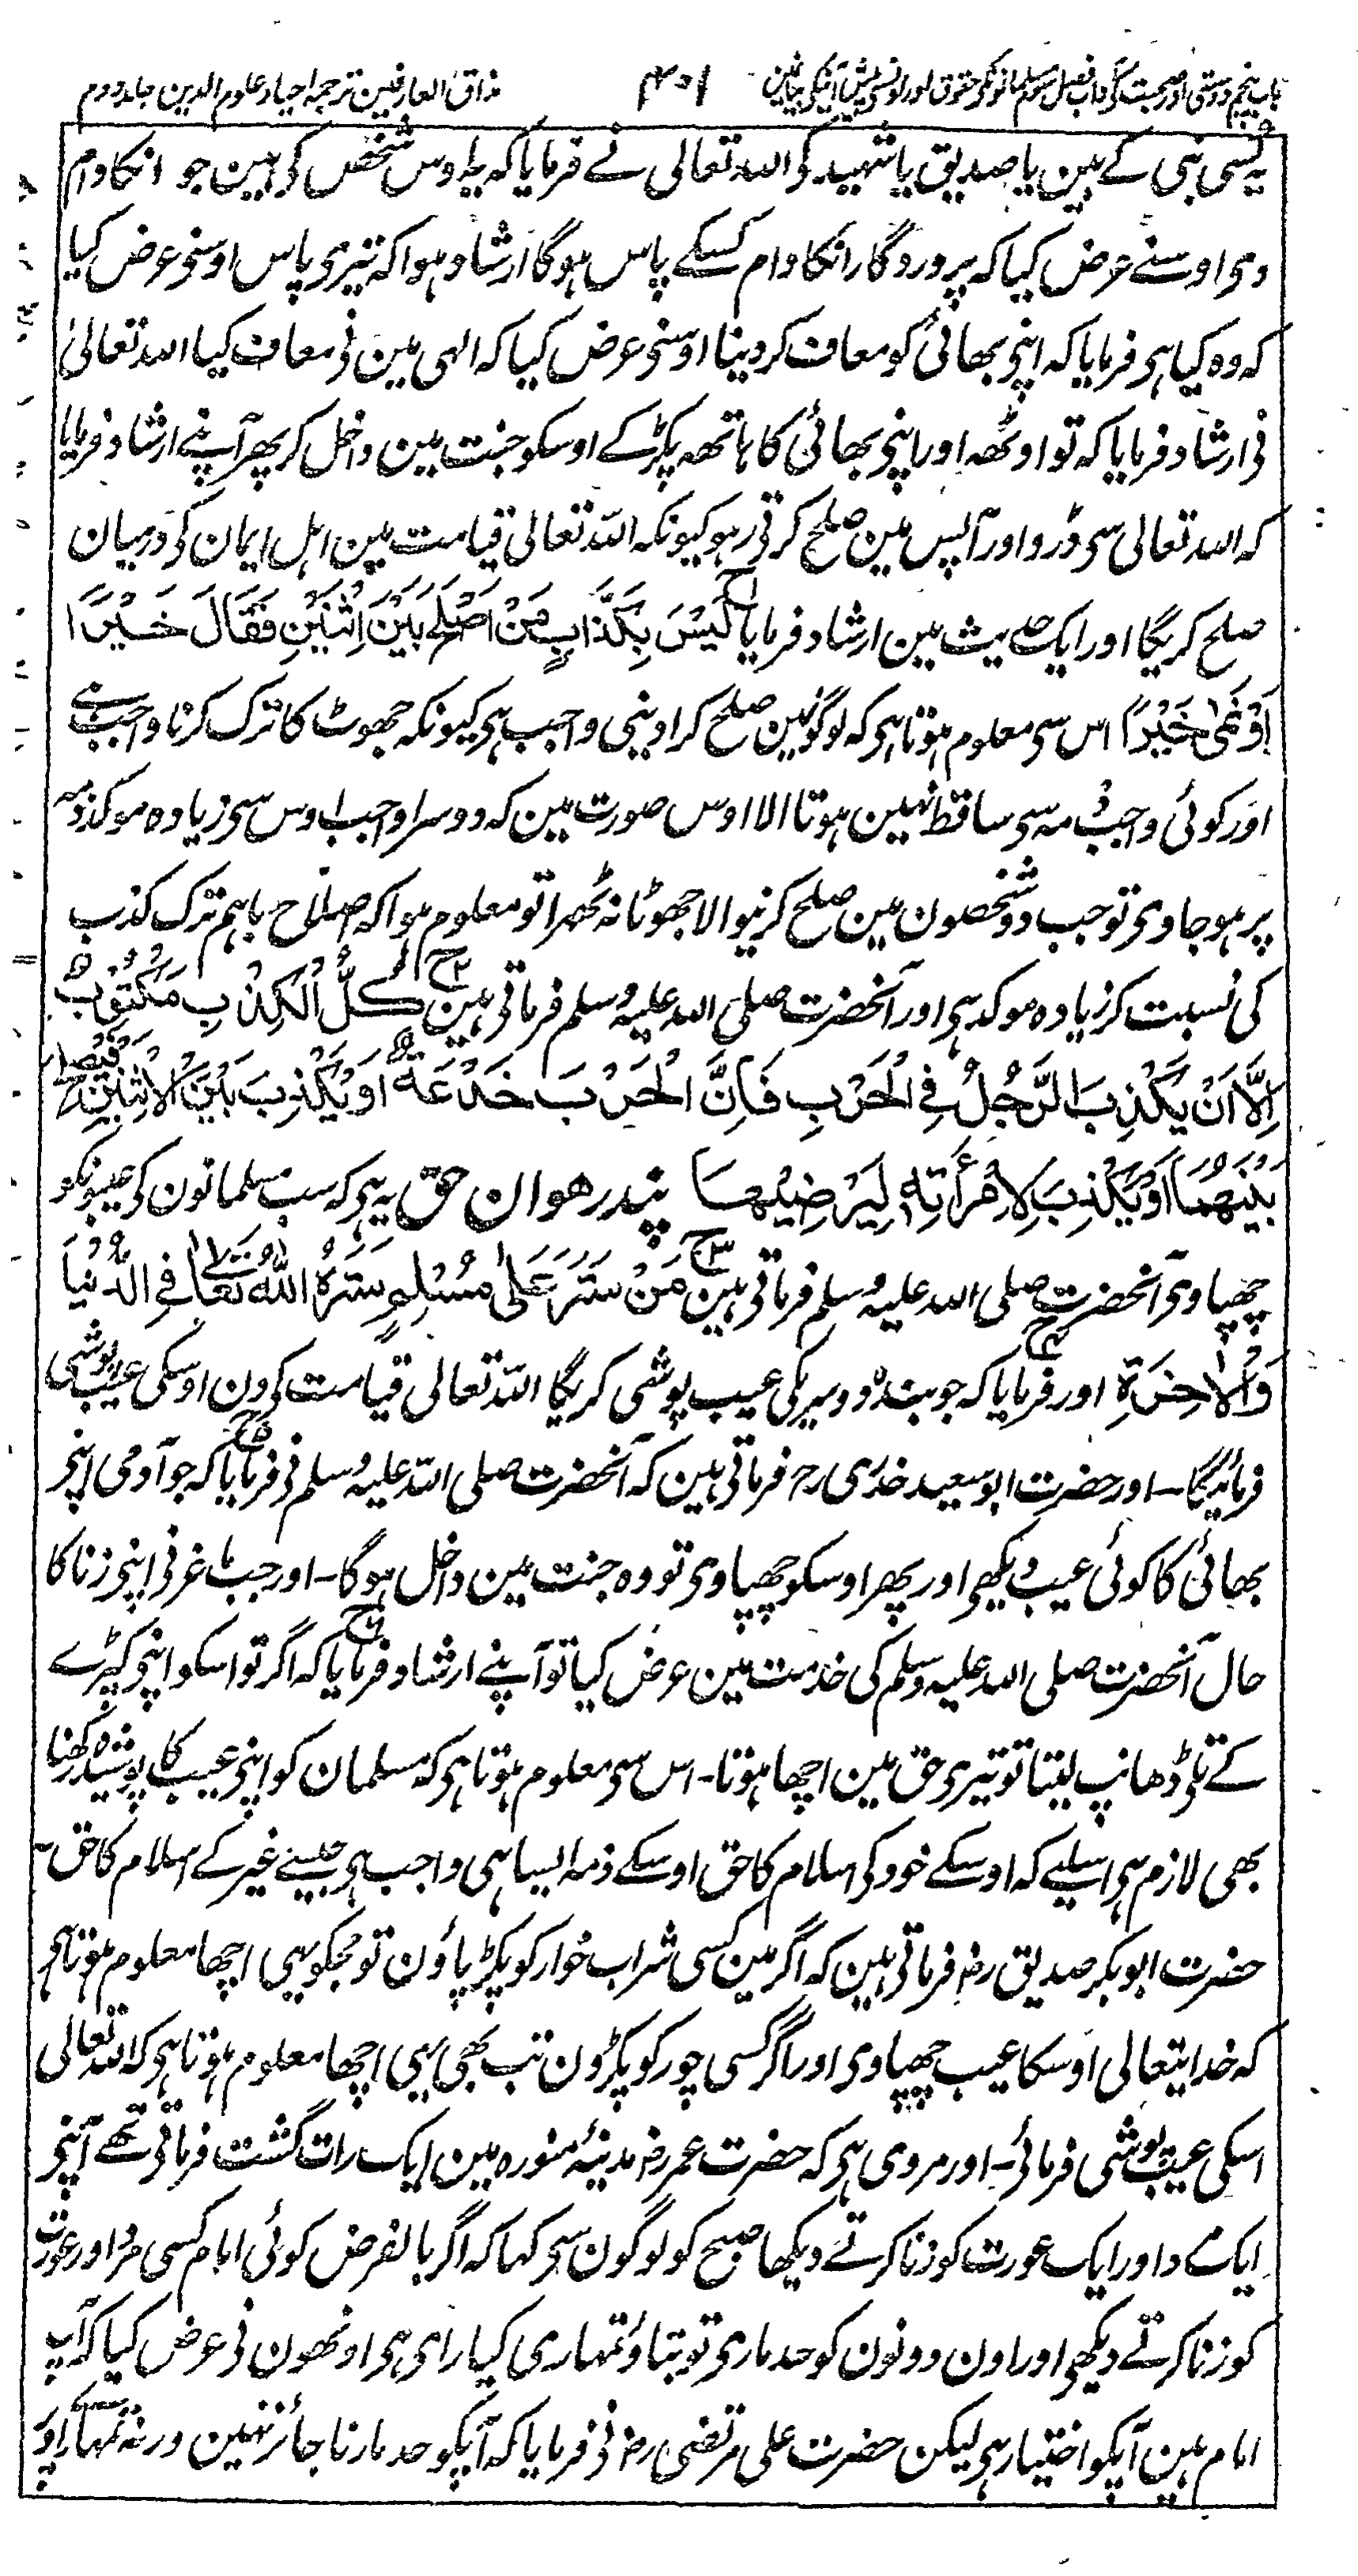 باب پنجم دوستی اور صحبت کے آداب فصل سوم مسلمانونکے حقوق اور اونسے پیش آنیکے بیان مین
۳۵۱
مذاق العارفین ترجمہ احیاء علوم الدین جلد دوم
یہ کسی نبی کے ہین یا صدیق یا شہید کے اللہ تعالی نے فرمایا کہ یہ اوس شخص کی ہین جو انکا دام
دی اوسنے عرض کیا کہ پروردگار انکا دام کسکے پاس ہوگا ارشاد ہوا کہ تیری پاس اوسنی عرض کیا
کہ وہ کیا ہی فرمایا کہ اپنی بھائی کو معاف کر دینا اوسنی عرض کیا کہ الہی مین نی معاف کیا اللہ تعالیٰ
نی ارشاد فرمایا کہ تو اوٹھہ اور اپنی بھائی کا ہاتھہ پکڑ کے اوسکو جنت مین داخل کر پھر آپنے ارشاد فرمایا
کہ اللہ تعالی سی ڈرو اور آپس مین صلح کرتی رہو کیونکہ اللہ تعالی قیامت مین اہل ایمان کی درمیان
صلح کریگا اور ایک حدیث مین ارشاد فرمایا لَیْسَ بِکَذَّابٍ مَنْ اَصْلَحَ بَیْنَ اِثْنَیْنِ فَقَالَ خَیْرًا
اَوْ نَمٰی خَیْرًا اس سی معلوم ہوتا ہی کہ لوگونمین صلح کرادینی واجب ہی کیونکہ جھوٹ کا ترک کرنا واجب ہے
اور کوئی واجب ذمہ سی ساقط نہین ہوتا الا اوس صورت مین کہ دوسرا واجب اوس سی زیادہ موکد ذمہ
پر ہو جاوی تو جب دو شخصون مین صلح کرنیوالا جھوٹا نہ ٹھہرا تو معلوم ہوا کہ اصلاح باہم ترک کذب
کی نسبت کر زیادہ موکد ہی اور آنحضرت صلی اللہ علیہ وسلم فرماتی ہین کُلُّ الْکِذْبِ مَکْتُوْبٌ
اِلَّا اَنْ یَکْذِبَ الرَّجُلُ فِی الْحَرْبِ فَاِنَّ الْحَرْبَ خَدْعَةٌ اَوْ یَکْذِبَ بَیْنَ الْاِثْنَیْنِ فَیُصْلِحَ
بَیْنَھُمَا اَوْ یَکْذِبَ لِاِمْرَأَتِهٖ لِیَرْضِیْھَا پندرھوان حق یہ ہی کہ سب مسلمانون کی عیبونکو
چھپاوی آنحضرت صلی اللہ علیہ وسلم فرماتی ہین مَنْ سَتَرَ عَلٰی مُسْلِمٍ سَتَرَہُ اللّٰهُ تَعَالٰی فِی الدُّنْیَا
وَالْاٰخِرَةِ اور فرمایا کہ جو بندہ دوسریکی عیب پوشی کریگا اللہ تعالی قیامت کی دن اوسکی عیب پوشی
فرمائیگا۔ اور حضرت ابو سعید خدری رح فرماتی ہین کہ آنحضرت صلی اللہ علیہ وسلم نی فرمایا کہ جو آدمی اپنی
بھائی کا کوئی عیب دیکھی اور پھر اوسکو چھپاوی تو وہ جنت مین داخل ہوگا۔ اور جب ماعز نی اپنی زنا کا
حال آنحضرت صلی اللہ علیہ وسلم کی خدمت مین عرض کیا تو آپنے ارشاد فرمایا کہ اگر تو اسکو اپنی کپڑے
کے تلی ڈھانپ لیتا تو تیری حق مین اچھا ہوتا۔ اس سی معلوم ہوتا ہی کہ مسلمان کو اپنی عیب کا پوشیدہ رکھنا
بھی لازم ہی اسلیے کہ اوسکے خود کی اسلام کا حق اوسکے ذمہ ایسا ہی واجب ہی جیسے غیر کے اسلام کا حق۔
حضرت ابوبکر صدیق رض فرماتی ہین کہ اگر مین کسی شراب خوار کو پکڑ پاؤن تو مجکو یہی اچھا معلوم ہوتا ہی
کہ خدایتعالی اوسکا عیب چھپاوی اور اگر کسی چور کو پکڑون تب بھی یہی اچھا معلوم ہوتا ہی کہ اللہ تعالی
اسکی عیب پوشی فرمائی۔ اور مروی ہی کہ حضرت عمر رض مدینۂ منورہ مین ایک رات گشت فرماتی تھے آپنی
ایک مرد اور ایک عورت کو زنا کرتے دیکھا صبح کو لوگون سی کہا کہ اگر بالفرض کوئی امام کسی مرد اور عورت
کو زنا کرتے دیکھی اور اون دونون کو حد ماری تو بتاؤ تمہاری کیا رای ہی اونھون نی عرض کیا کہ آپ
امام ہین آپکو اختیار ہی لیکن حضرت علی مرتضی رض نی فرمایا کہ آپکو حد مارنا جائز نہین ورنہ تمہاری اوپر